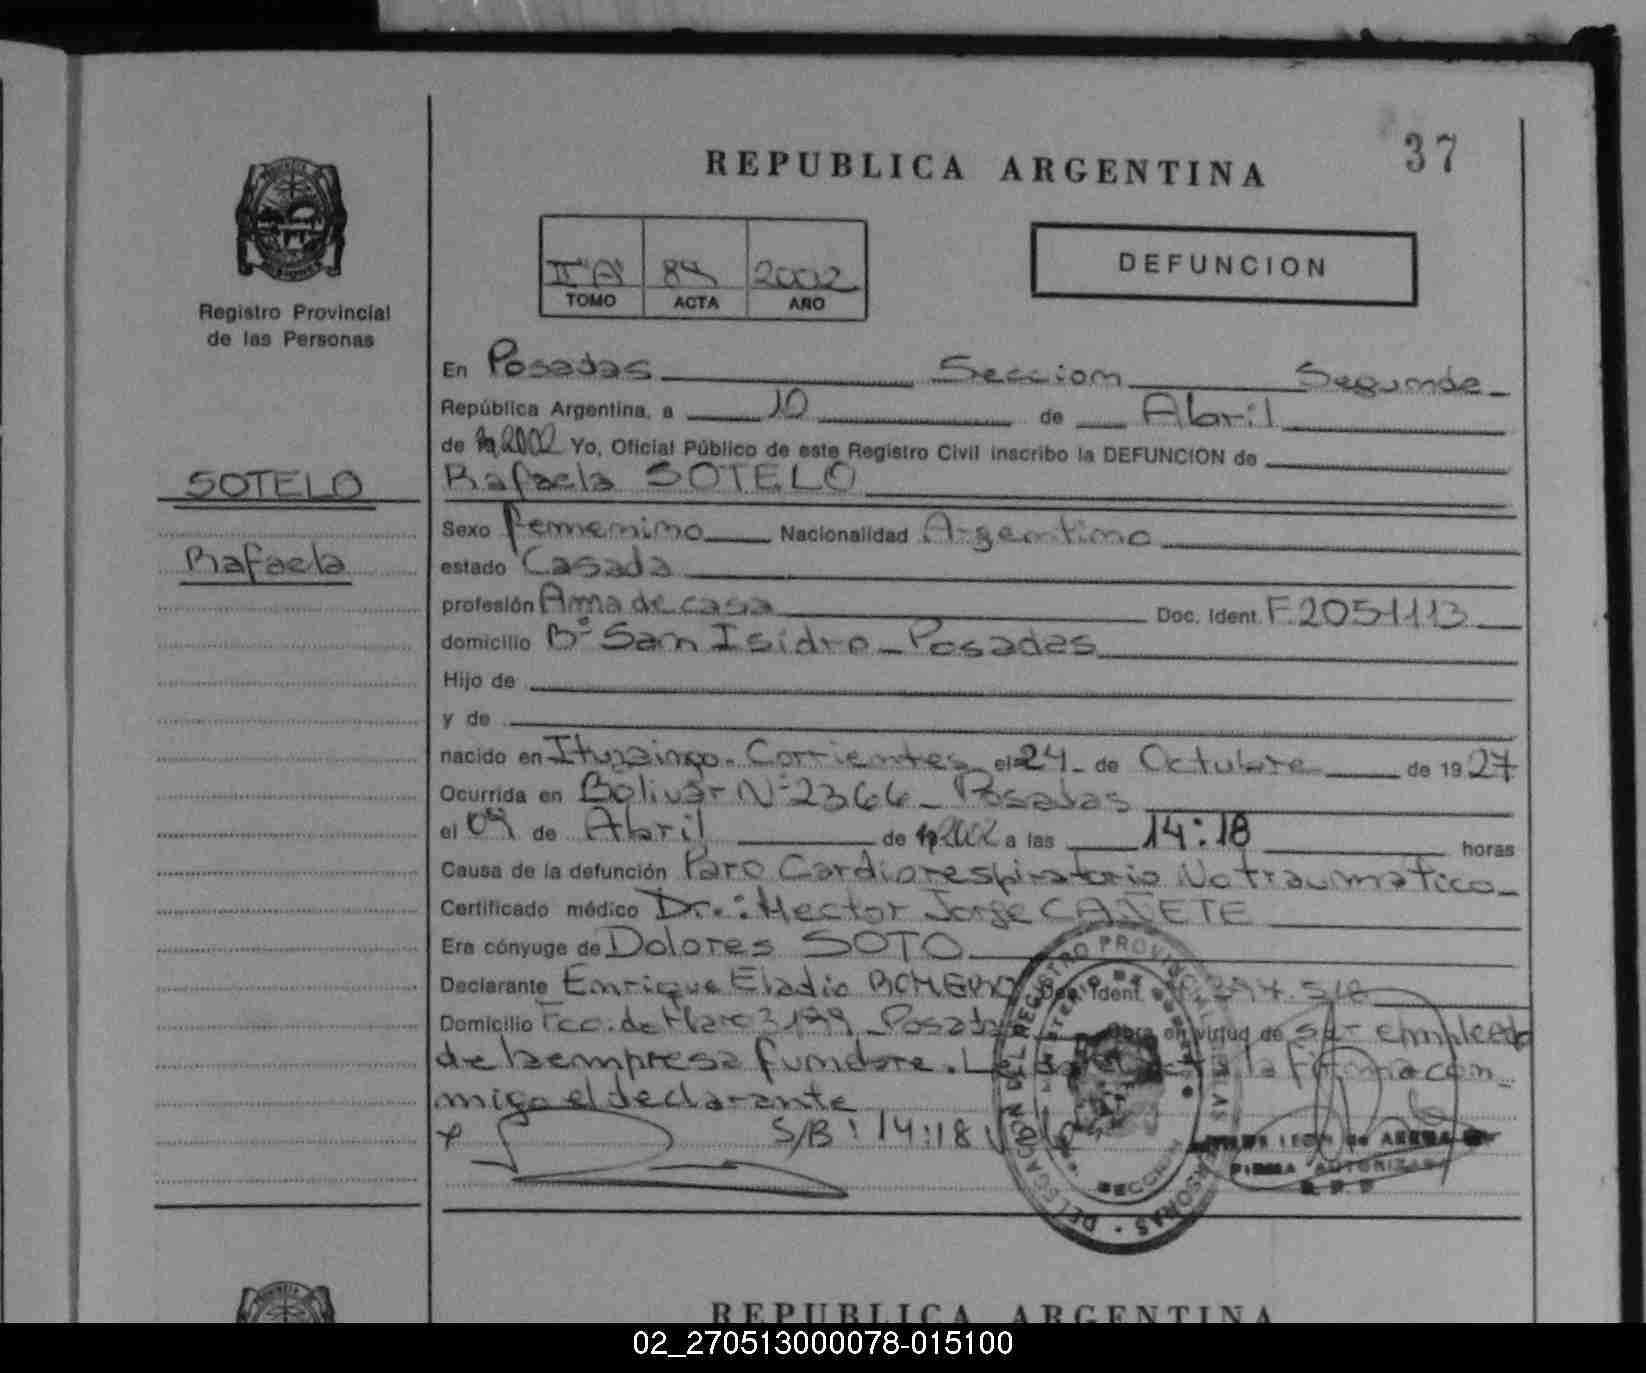 37
REPUBLICA ARGENTINA
DEFUNCION
II "A" 84 2002
TOMO ACTA AÑO
Registro Provincial
de las Personas
SOTELO
Rafaela
En Posadas Seccion Segunda
República Argentina, a 10 de Abril
de 2002 Yo, Oficial Público de este Registro Civil inscribo la DEFUNCION de
Rafaela SOTELO
Sexo femenino Nacionalidad Argentina
estado Casada
profesión Ama de casa Doc. Ident. F. 2051113
domicilio Bº San Isidro - Posadas
Hijo de
y de
nacido en Ituzaingo. Corrientes el 24 de Octubre de 1927
Ocurrida en Bolivar Nº 2366 - Posadas
el 09 de Abril de 2002 a las 14:18 horas
Causa de la defunción Paro Cardiorespiratorio No traumatico
Certificado médico Dr.: Hector Jorge CAÑETE
Era cónyuge de Dolores SOTO
Declarante Enrique Eladio ROMERO Doc. Ident.
Domicilio Fco. de Haro 3199 - Posadas Obra en virtud de ser empleado
de la empresa funebre. la firma con
migo el declarante
S/B: 14:18 Vale
FIRMA AUTORIZADA
REPUBLICA ARGENTINA
02_270513000078-015100